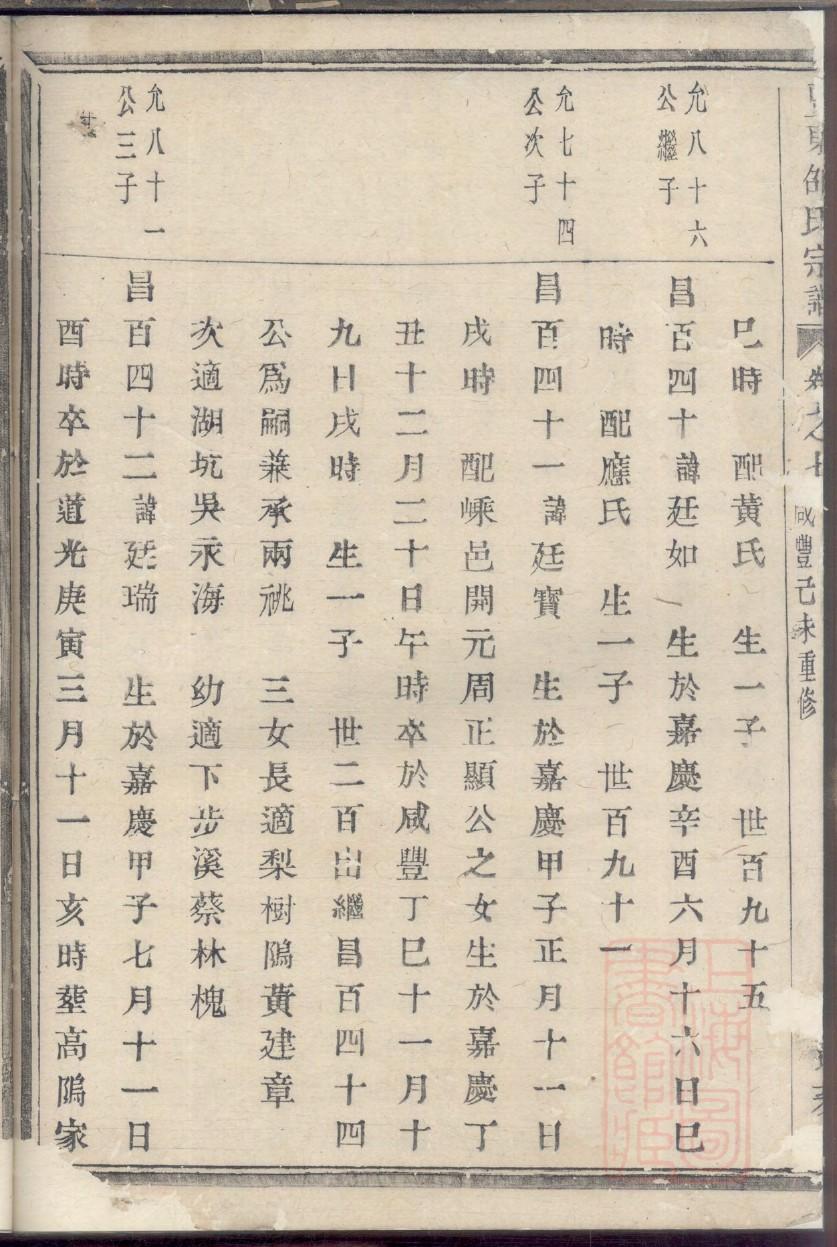 東邵氏宗譜 卷之七 咸豐己未重修
巳時 配黄氏 生一子 世百九十五
允八十六
公繼子
昌百四十諱廷如 生於嘉慶辛酉六月十六日巳
時 配應氏 生一子 世百九十一
允七十四
公次子
昌百四十一諱廷寶 生於嘉慶甲子正月十一日
戌時 配嵊邑開元周正顯公之女生於嘉慶丁
丑十二月二十日午時卒於咸豐丁巳十一月十
九日戌時 生一子 世二百出繼昌百四十四
公爲嗣兼承兩祧 三女長適梨樹隝黃建章
次適湖坑吳永海 幼適下步溪蔡林槐
允八十一
公三子
昌百四十二諱廷瑞 生於嘉慶甲子七月十一日
酉時卒於道光庚寅三月十一日亥時塟高隝家